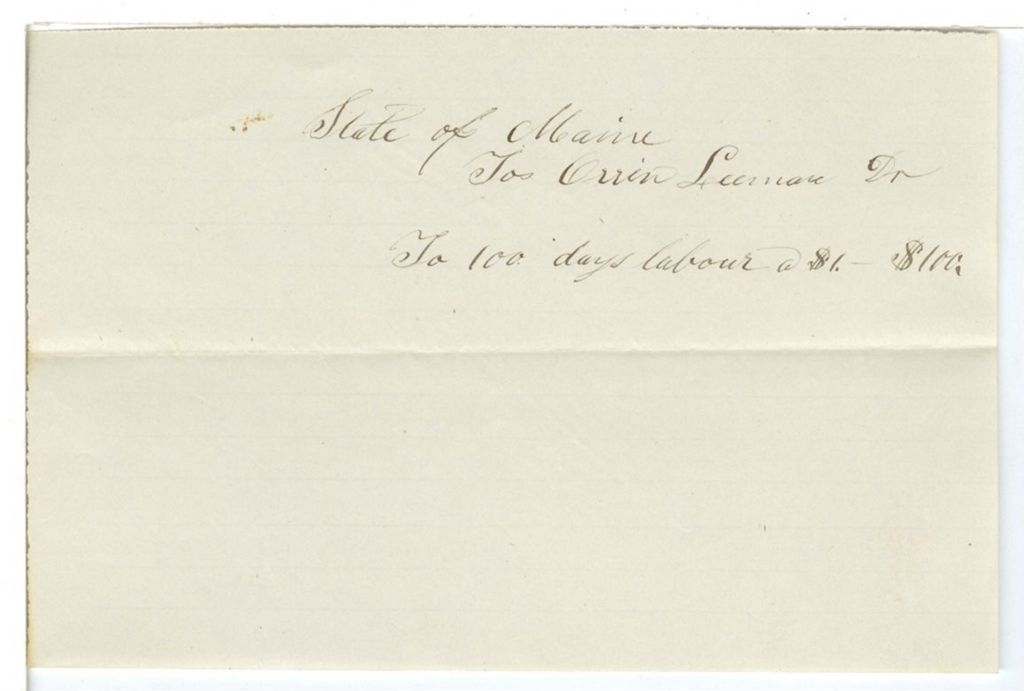 State of Maine
To Orrin Leeman Dr
To 100 days labour a $1. — $100.